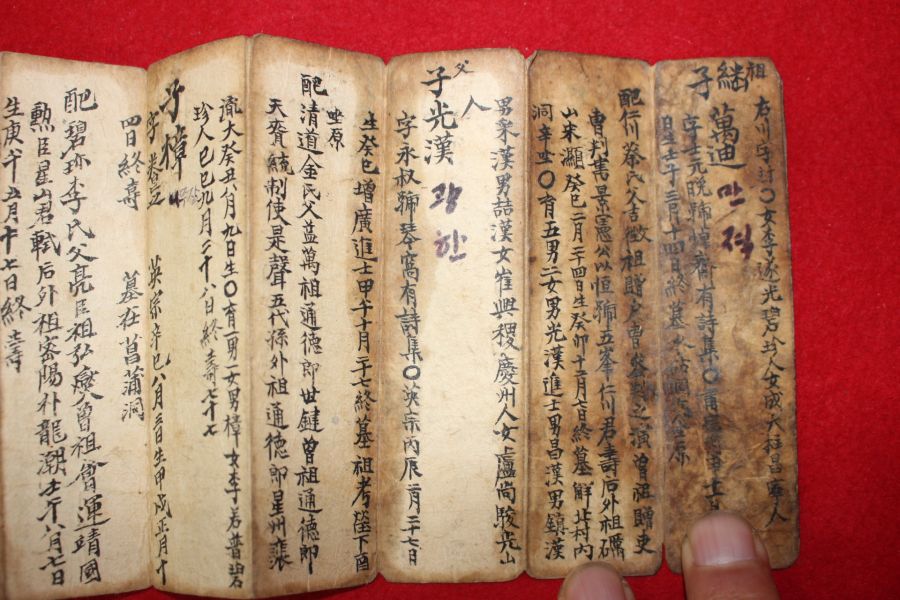 祖
右川守封〇女李遂光碧珍人女成大 昌寧人
繼子 萬迪 만적
字士元晩號悼齋有詩集〇
日生壬午三月十四日終墓
配仁川蔡氏父吉徵祖贈戶曹參判之演曾祖贈吏
曹判 景憲公以恒號五峯仁川君壽后外祖礪
山宋灝癸巳二月二十四日生癸卯十二月 日終墓鮮北村內
洞辛坐〇育五男二女男光漢進士男昌漢男鎭漢
男 漢男喆漢女崔興稷慶州人女盧尙駿光山
人
父
子光漢 광한
字永叔號琴窩有詩集〇英宗丙辰二月二十七日
生癸巳增廣進士甲午十月二十七終墓祖考墓下酉
坐原
配清道金氏父益萬祖通德郎世鍵曾祖通德郎
天胥統制使是聲五代孫外祖通德郎星州裵
胤大癸丑八月九日生〇育一男一女男樟女李若普碧
珍人己巳九月二十八日終壽七十七
子樟
字養 英宗辛巳八月三日生甲戌正月十
四日終壽 墓在菖蒲洞
配碧珍李氏父亮臣祖弘燮曾祖曾運靖國
勳臣星山君軾后外祖密陽朴龍潮壬午八月七日
生庚午五月十七日終 壽